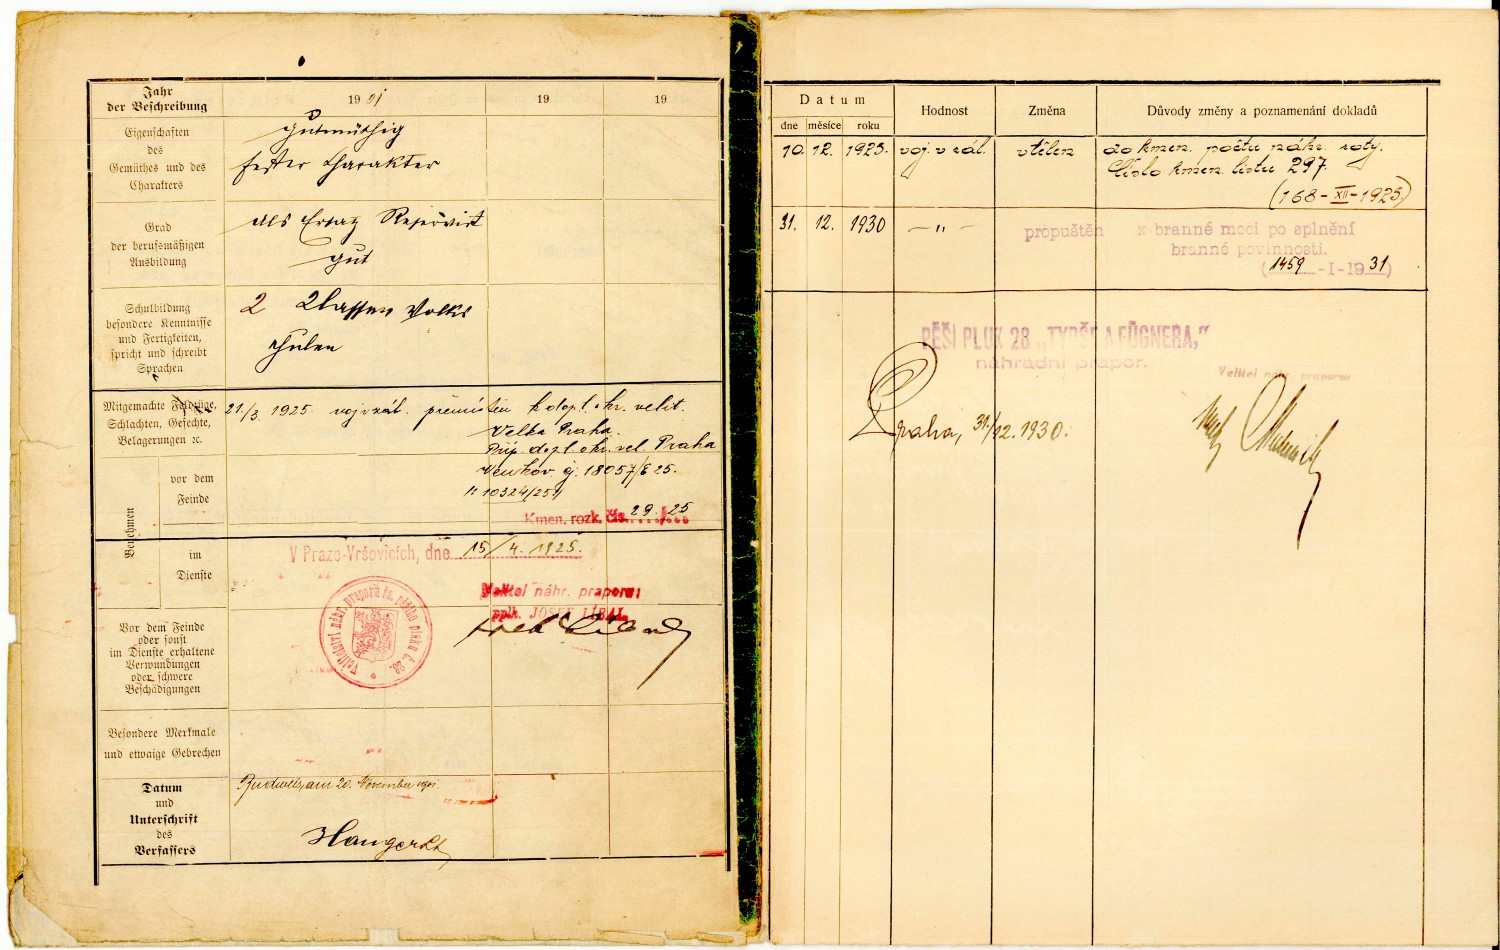 Jahr
der Beschreibung
1901
19
19
Eigenschaften
des
Gemüthes und des
Charakters
gutmüthig
fester Charakter
Grad
der berufsmäßigen
Ausbildung
als Ersatz Reservist
gut
Schulbildung
besondere Kenntnisse
und Fertigkeiten,
spricht und schreibt
Sprachen
2 Classen Volks
schulen
Mitgemachte Feldzüge,
Schlachten, Gefechte,
Belagerungen ꝛc.
21./3. 1925. voj. v zál. přemístěn k dopl. okr. velit.
Velká Praha.
dopl. okr. vel. Praha
Venkov čj. 18057/E 25.
10324/25
Kmen. rozk. čís. 29./25
Benehmen
vor dem
Feinde
im
Dienste
V Praze-Vršovicích, dne 15/4. 1925.
Velitel náhr. praporu:
pplk. JOSEF LÍBAL
Velitelství náhr. praporu čs. pěšího pluku č. 28.
Vor dem Feinde
oder sonst
im Dienste erhaltene
Verwundungen
oder schwere
Beschädigungen
Besondere Merkmale
und etwaige Gebrechen
Datum
und
Unterschrift
des
Verfassers
Budweis, am 20. November 1901.
Datum
dne
měsíce
roku
Hodnost
Změna
Důvody změny a poznamenání dokladů
10. 12. 1925. voj. v zál. vtělen do kmen. počtu náhr. roty.
Číslo kmen. listu 297.
(168-XII-1925)
31. 12. 1930 —„— propuštěn z branné moci po splnění
branné povinnosti.
(1459-I-1931)
PĚŠÍ PLUK 28 „TYRŠE A FÜGNERA,"
náhradní prapor.
Velitel náhr. praporu
Praha, 31./12. 1930.